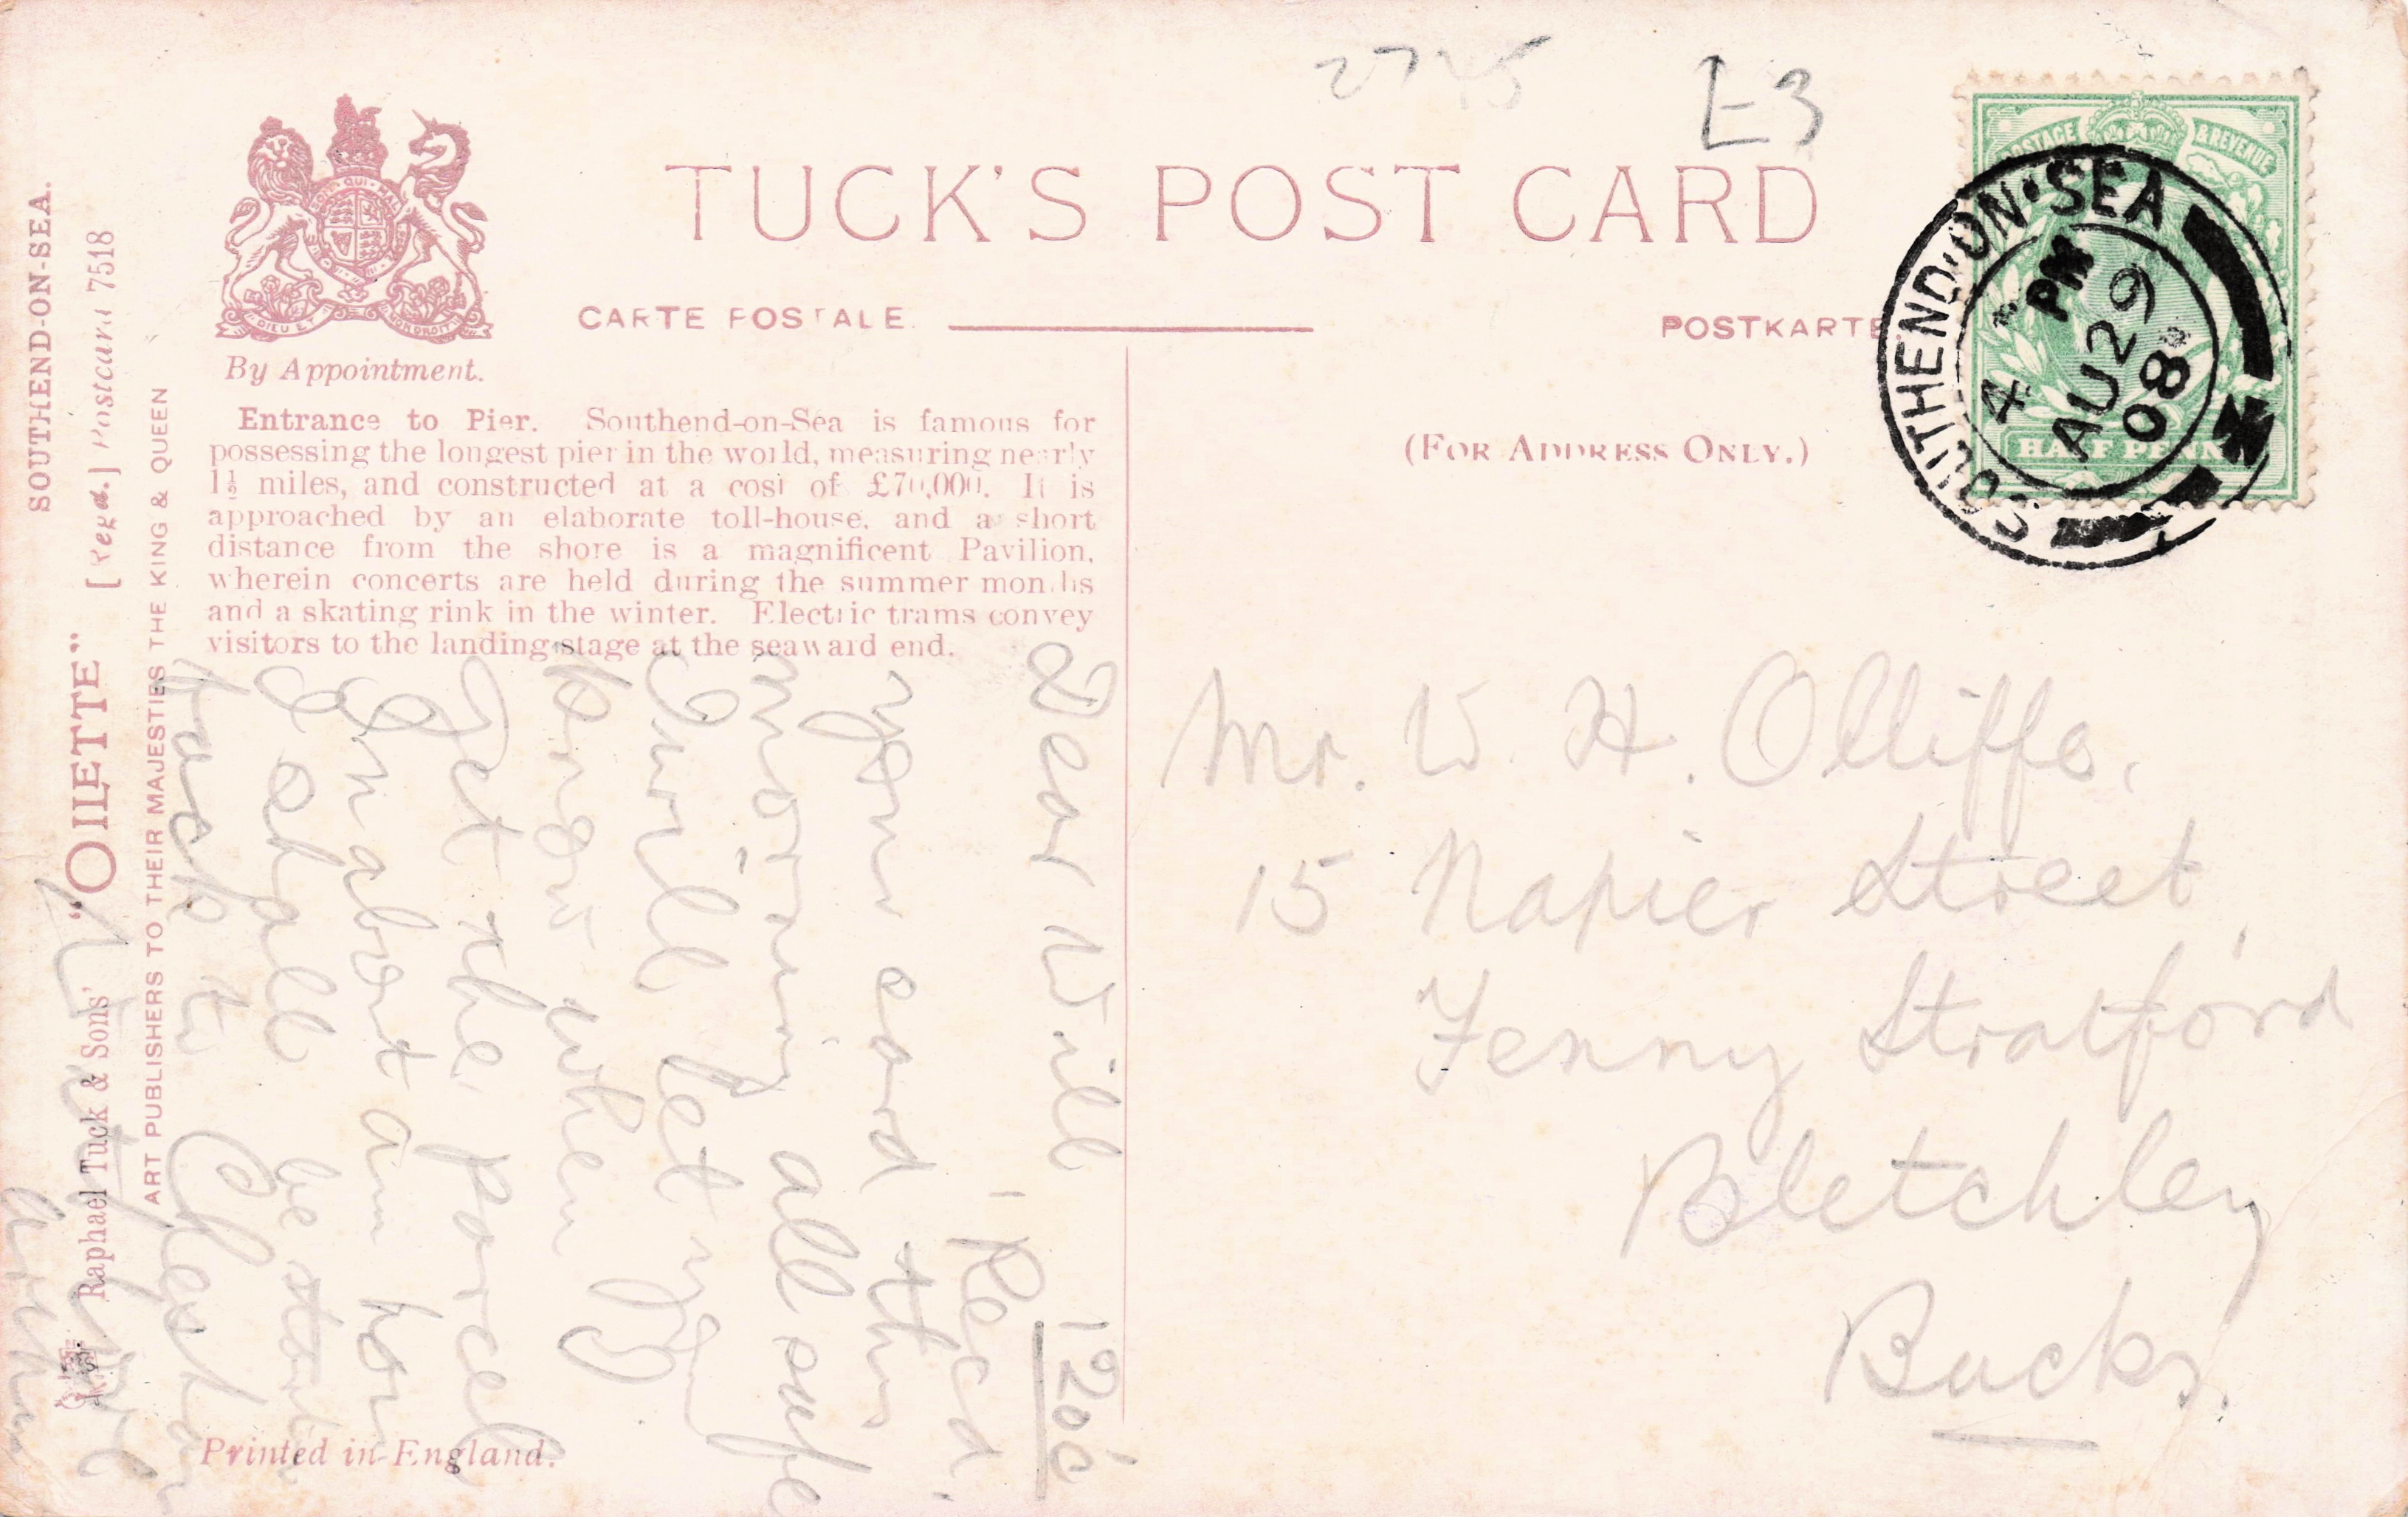 2745
£3
TUCK'S POST CARD
CARTE POSTALE
POSTKARTE
By Appointment.
(FOR ADDRESS ONLY.)
SOUTHEND-ON-SEA.
"OILETTE" [Regd.] Postcard 7518
Raphael Tuck & Sons'
ART PUBLISHERS TO THEIR MAJESTIES THE KING & QUEEN
Entrance to Pier. Southend-on-Sea is famous for
possessing the longest pier in the world, measuring nearly
1½ miles, and constructed at a cost of £70,000. It is
approached by an elaborate toll-house, and a short
distance from the shore is a magnificent Pavilion,
wherein concerts are held during the summer months
and a skating rink in the winter. Electric trams convey
visitors to the landing stage at the seaward end.
POSTAGE & REVENUE
HALF PENNY
SOUTHEND-ON-SEA
4 PM
AU 29
08
Mr. W. H. Olliffe,
15 Napier Street,
Fenny Stratford
Bletchley
Bucks.
Dear Will
Recd.
your card this
morning all safe
I will let you
know when I
get the parcel
back to
Printed in England.